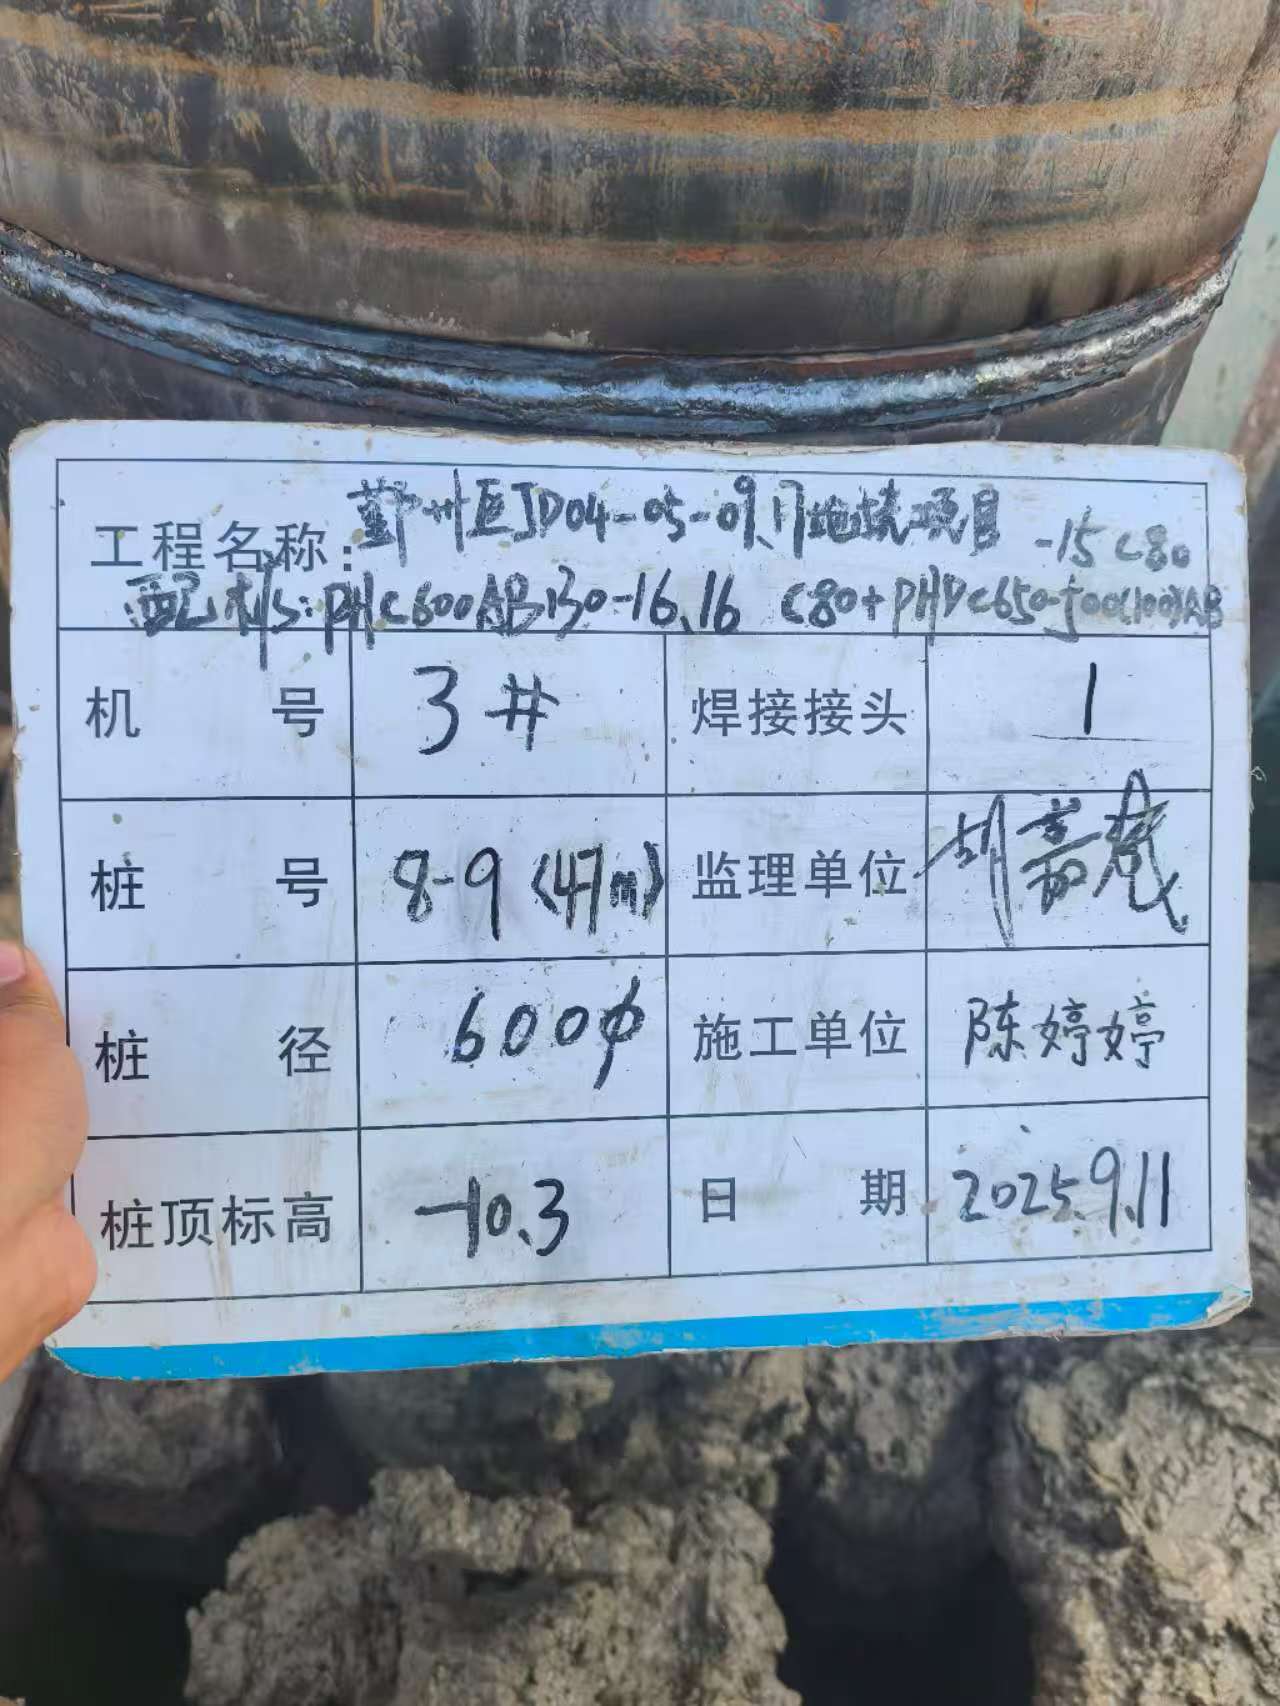 工程名称: 鄞州区JD04-05-09.17地块项目 -15 C80
配桩: PHC600AB130-16.16 C80+PHDC650-500(100)AB
机 号 3# 焊接接头 1
桩 号 8-9 (47m) 监理单位 胡嘉
桩 径 600φ 施工单位 陈婷婷
桩顶标高 -10.3 日 期 2025.9.11